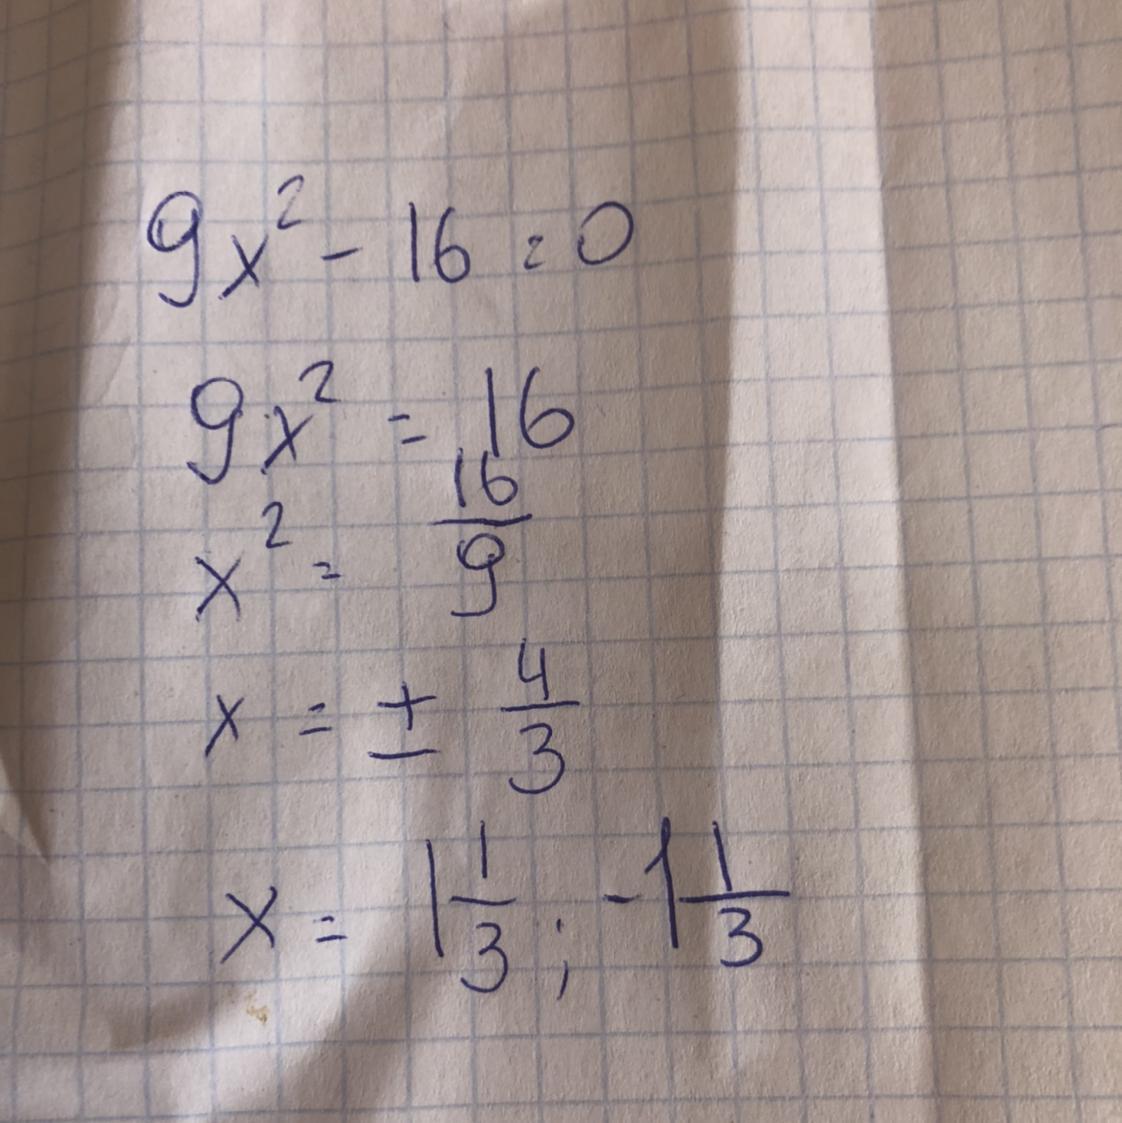 9x² - 16 = 0
9x² = 16
x² = 16/9
x = ± 4/3
x = 1 1/3 ; -1 1/3